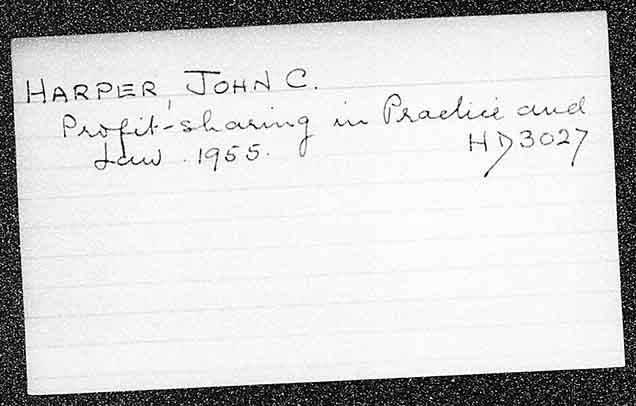 HARPER, JOHN C.
Profit-sharing in Practice and
Law. 1955. HD3027